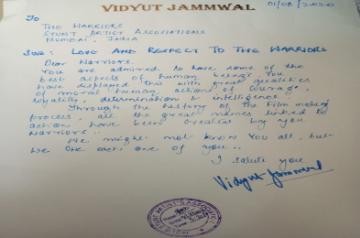 VIDYUT JAMMWAL
01/08/2020
To
THE WARRIORS
STUNT ARTIST ASSOCIATIONS
MUMBAI, INDIA
SUB: LOVE AND RESPECT TO THE WARRIORS
Dear Warriors.
You are admired to have some of the
best aspects of human beings. You
have displayed this with great qualities
of moral human actions of courage,
loyality, determination & intelligence.
Through the history of the film making
process, all the great names linked to
action have been created by you
Warriors..
We might not know you all, but
we owe each one of you..
I salute you
Vidyut Jammwal